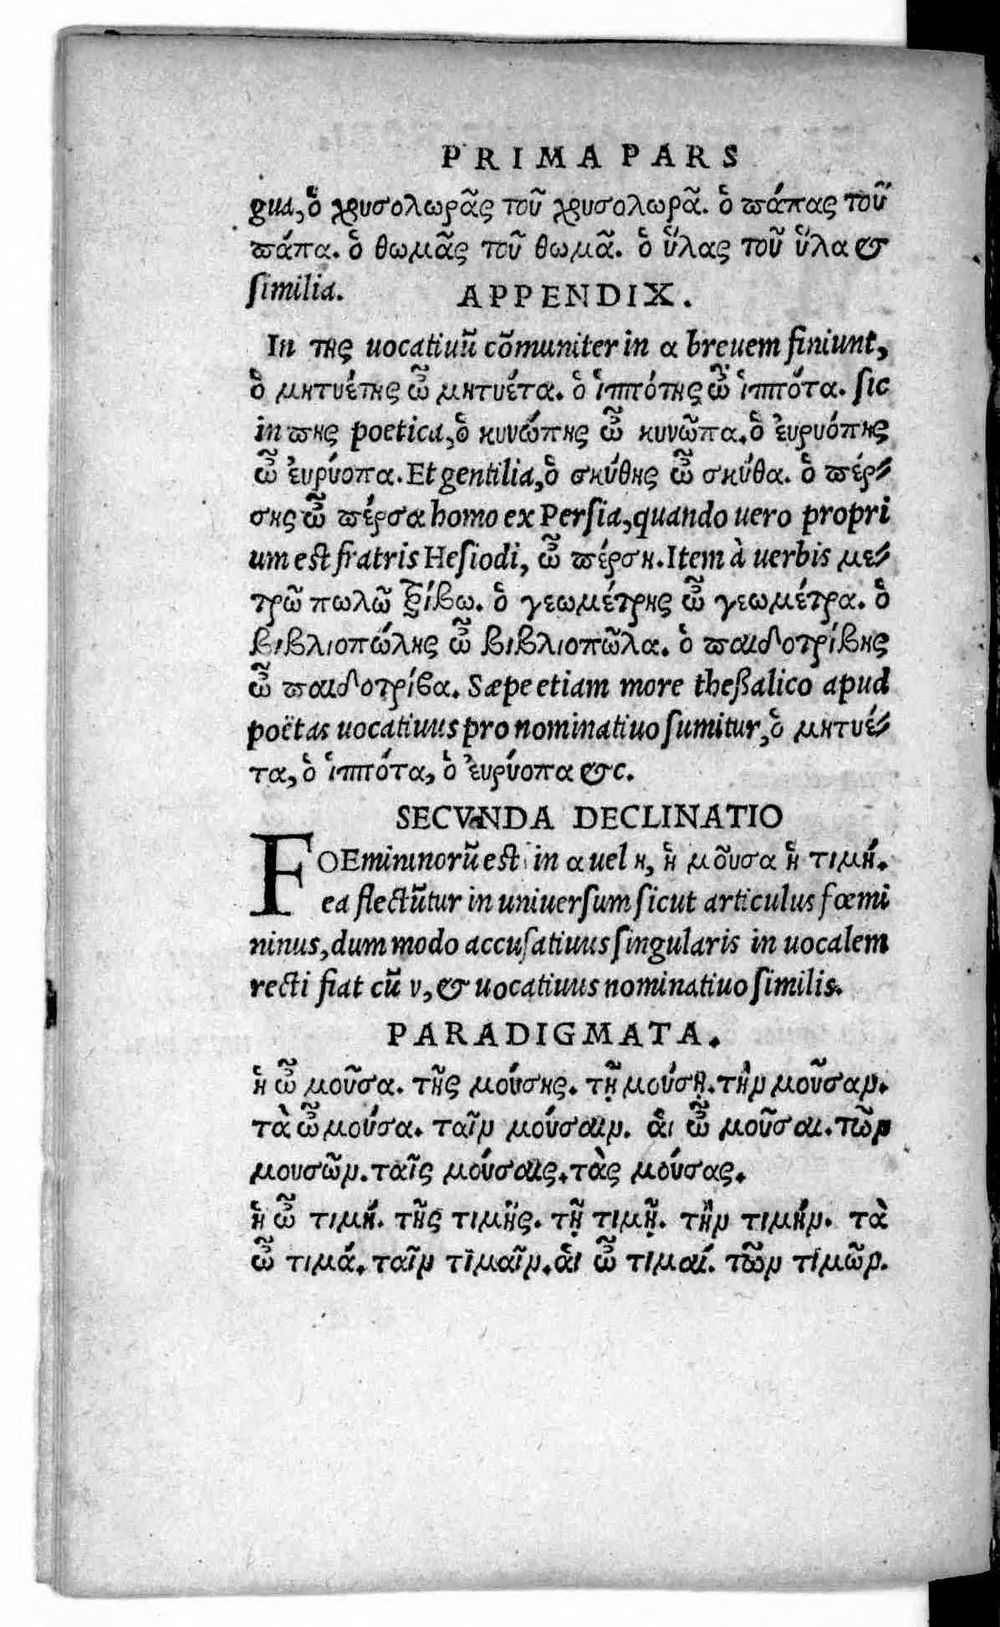 PRIMA PARS
gua, ὁ χρυσολωρᾶς τοῦ χρυσολωρᾶ. ὁ πάπας τοῦ
πάπα. ὁ θωμᾶς τοῦ θωμᾶ. ὁ ὕλας τοῦ ὕλα &
ſimilia. APPENDIX.
In της uocatiuũ cõmuniter in α breuem finiunt,
ὁ μητυέτης ὦ μητυέτα. ὁ ἱππότης ὦ ἱππότα. ſic
in πης poetica, ὁ κυνώπης ὦ κυνῶπα. ὁ ἐυρυόπης
ὦ ἐυρύοπα. Et gentilia, ὁ σκύθης ὦ σκύθα. ὁ πέρ⸗
σης ὦ πέρσα homo ex Perſia, quando uero propri
um eſt fratris Heſiodi, ὦ πέρση. Item à uerbis με⸗
τρῶ πωλῶ τρίβω. ὁ γεωμέτρης ὦ γεωμέτρα. ὁ
βιβλιοπώλης ὦ βιβλιοπῶλα. ὁ παιδοτρίβης
ὦ παιδοτρίβα. Sæpe etiam more theßalico apud
poëtas uocatiuus pro nominatiuo ſumitur, ὁ μητυέ⸗
τα, ὁ ἱππότα, ὁ ἐυρύοπα &c.
SECVNDA DECLINATIO
FOEmininorũ eſt in α uel η, ἡ μοῦσα ἡ τιμή.
ea flectũtur in uniuerſum ſicut articulus fœmi
ninus, dummodo accuſatiuus ſingularis in uocalem
recti fiat cũ ν, & uocatiuus nominatiuo ſimilis.
PARADIGMATA.
ἡ ὦ μοῦσα. τῆς μούσης. τῇ μούσῃ. τὴν μοῦσαν.
τὰ ὦ μούσα. ταῖν μούσαιν. ἁι ὦ μοῦσαι. τῶν
μουσῶν. ταῖς μούσαις. τὰς μούσας.
ἡ ὦ τιμή. τῆς τιμῆς. τῇ τιμῇ. τὴν τιμήν. τὰ
ὦ τιμά. ταῖν τιμαῖν. ἁι ὦ τιμαί. τῶν τιμῶν.